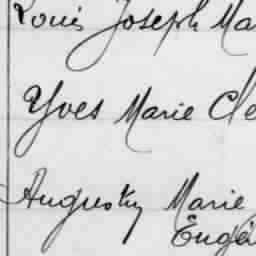 Louis Joseph Ma
Yves Marie Cle
Augustin Marie
Eugè